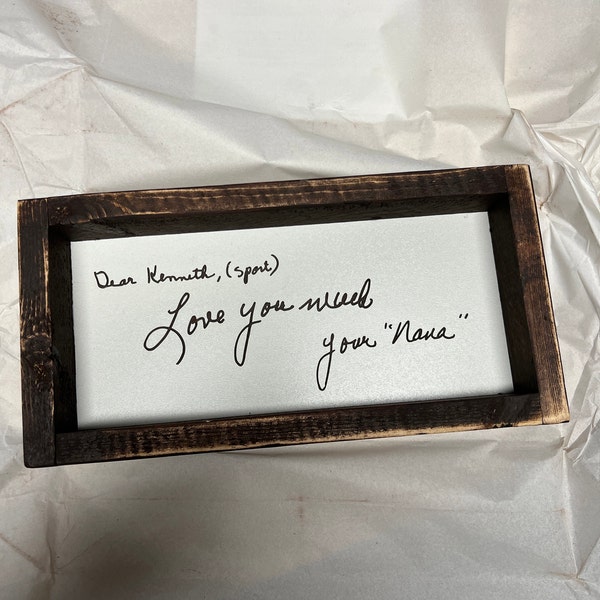 Dear Kenneth, (sport)
Love you much
your "Nana"